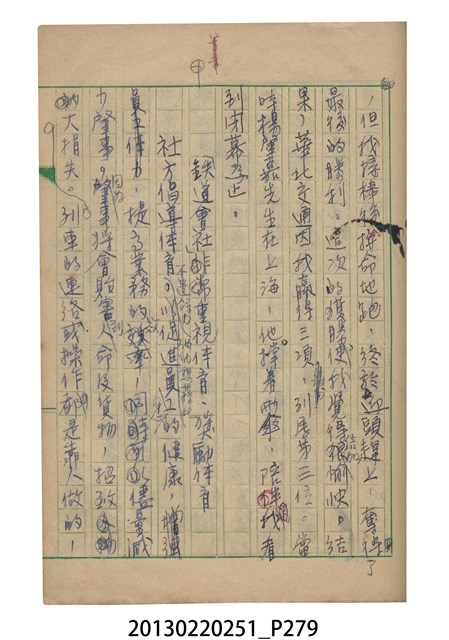 ，但我接棒後拼命地跑，終於迎頭趕上，奪得了
最後的勝利。這次的獲勝使我覺得倍加愉快。結
果，華北交通因我贏得三項，列為第三位。當
時楊肇嘉先生在上海，他撐着雨傘，陪我看
到閉幕為止。
鐵道會社非常重視体育、獎勵体育
社方倡導体育可以促進員工的健康，增強
員工体力，提高業務的效率，同時可以儘量減
少肇事。因為肇事將會貽害到人命及貨物，招致
大損失。列車的連絡或操作都是靠人做的，
20130220251_P279